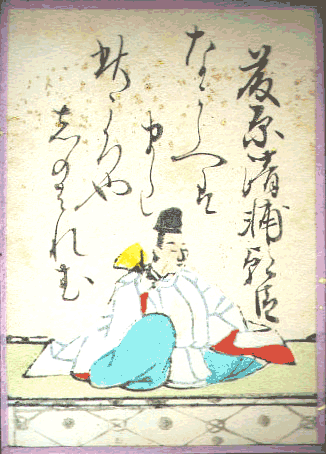 藤原清輔朝臣
なからへは
また
此ころや
しのはれむ